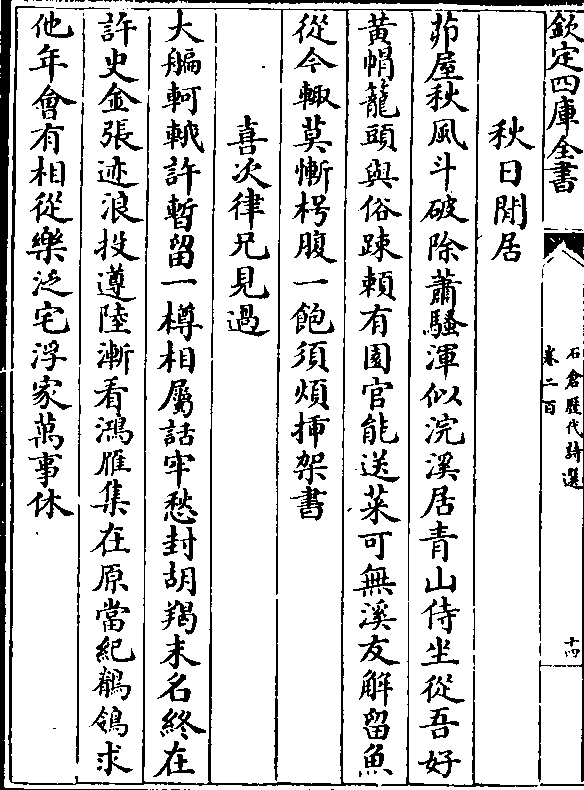 欽定四庫全書
石倉歷代詩選
卷二百
十四
秋日閒居
茆屋秋風斗破除蕭騷渾似浣溪居青山侍坐從吾好
黄帽籠頭與俗踈頼有園官能送菜可無溪友解留魚
從今輙莫慚枵腹一飽須煩揷架書
喜次律兄見過
大艑軻峩許暫留一樽相屬話牢愁封胡羯末名終在
許史金張迹浪投遵陸漸看鴻雁集在原當紀鶺鴒求
他年會有相從樂泛宅浮家萬事休